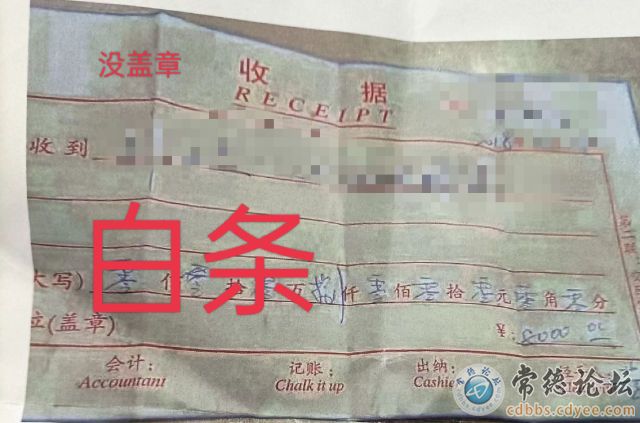 没盖章
收据
RECEIPT
018
收到
白条
大写) 零 零拾零万捌仟零佰零拾零元零角零分
位(盖章)
¥: 8000.00
第二联
会计: 记账: 出纳:
Accountant Chalk it up Cashie
常德论坛
cdbbs.cdyee.com